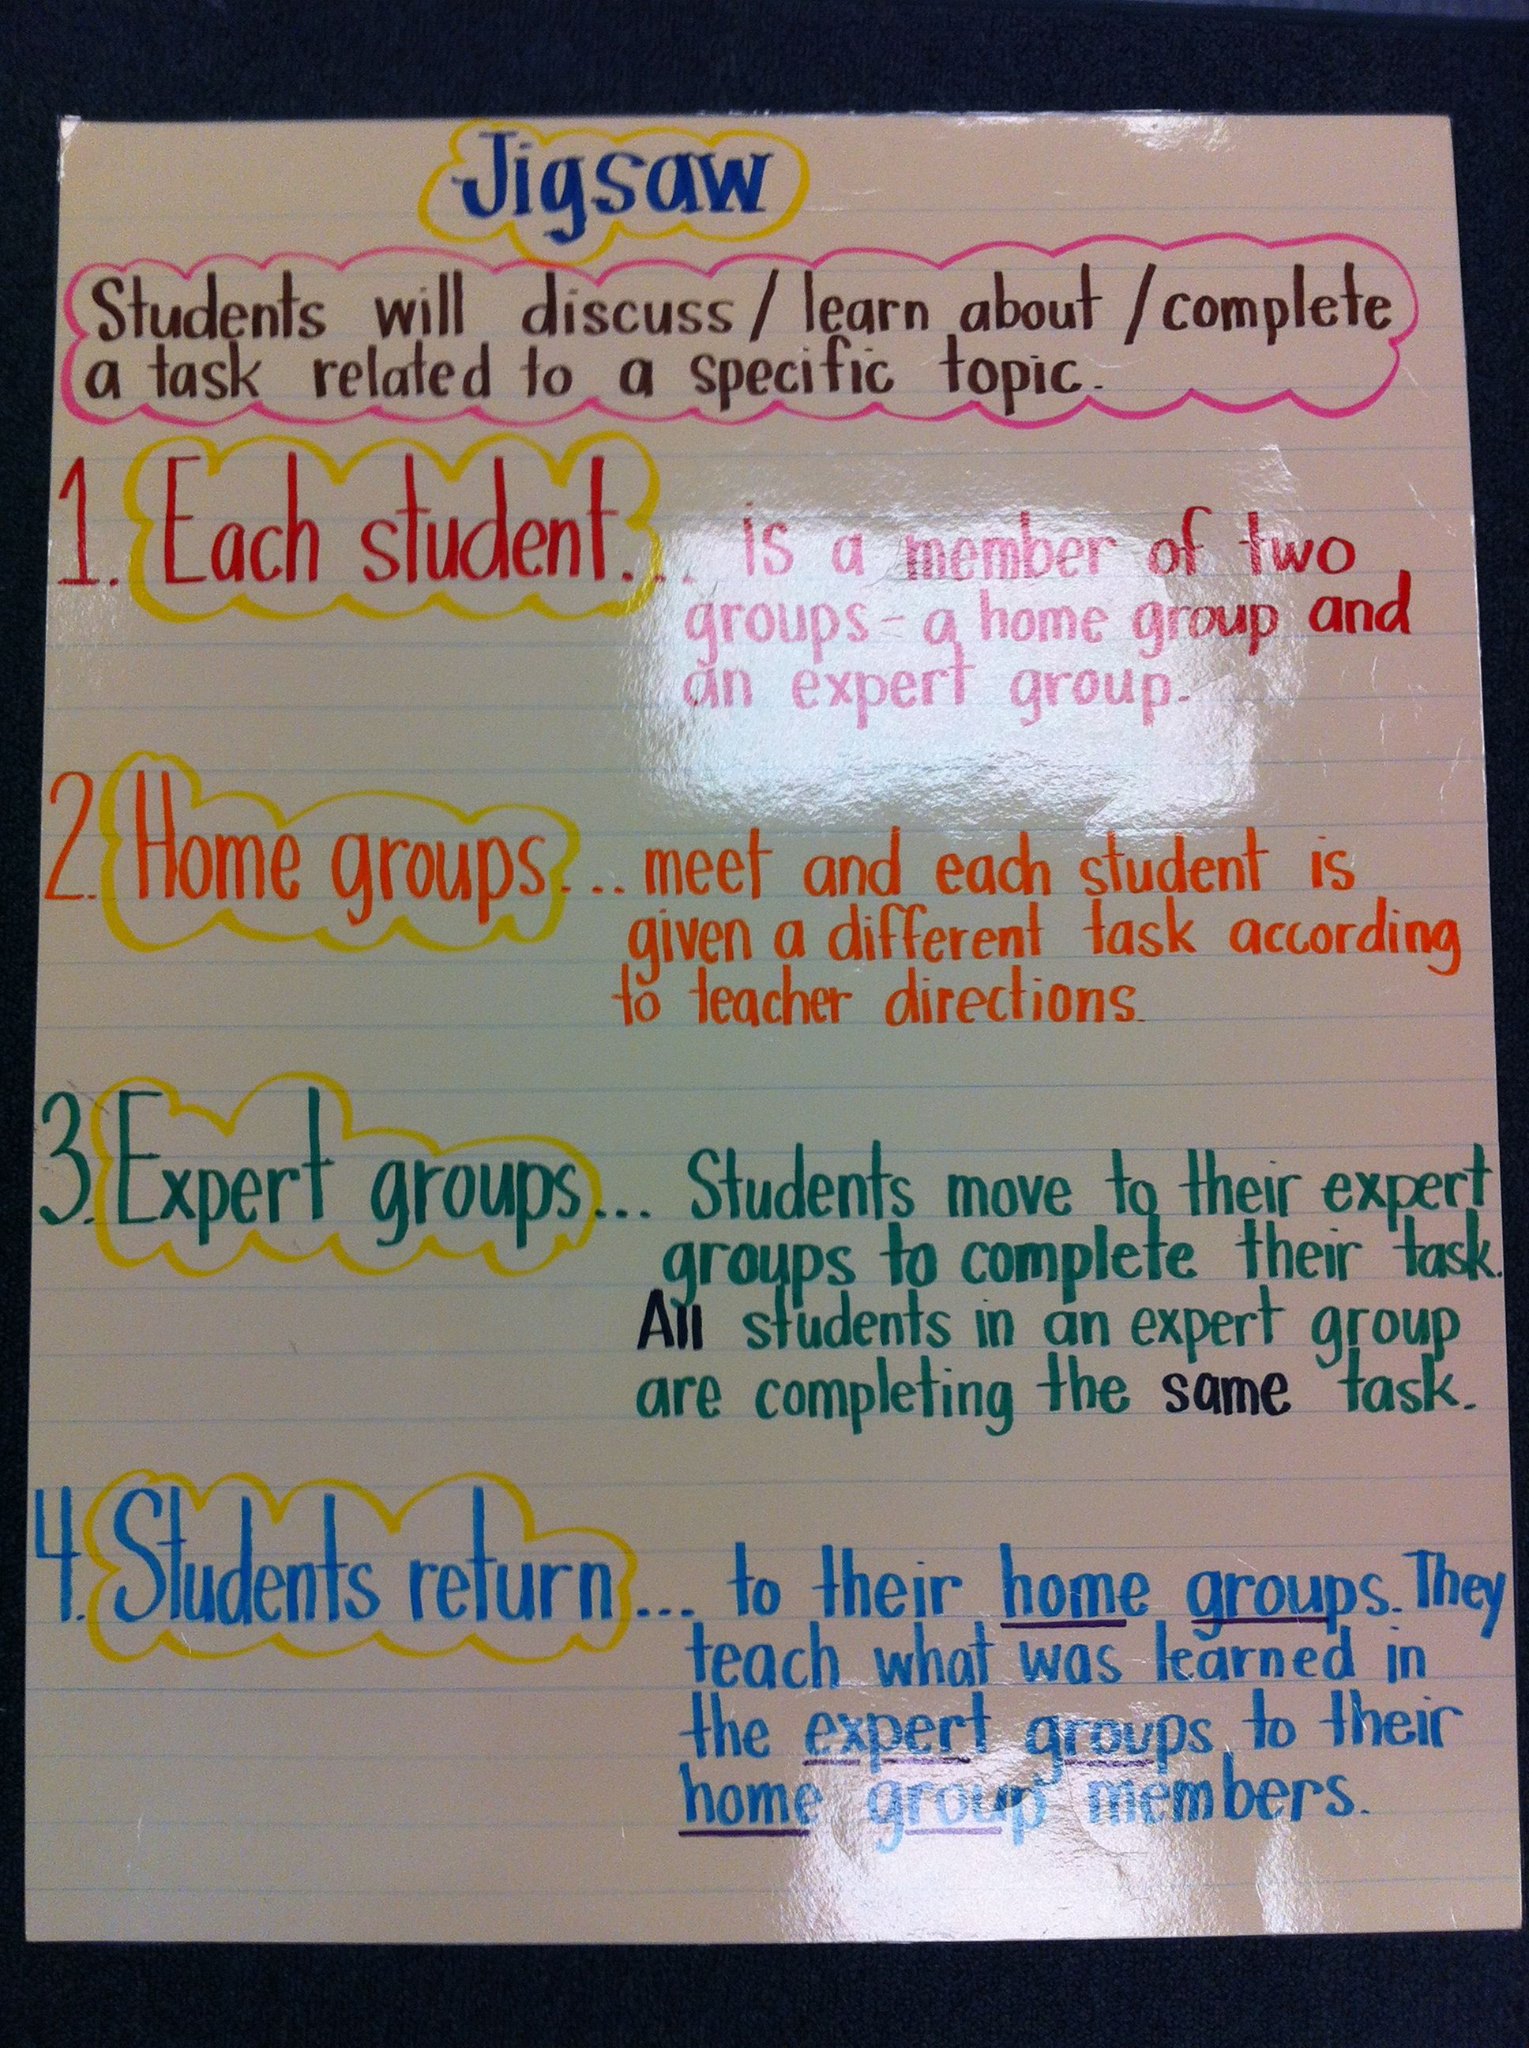 Jigsaw
Students will discuss / learn about / complete
a task related to a specific topic.
1. Each student... is a member of two
groups - a home group and
an expert group.
2. Home groups... meet and each student is
given a different task according
to teacher directions.
3. Expert groups... Students move to their expert
groups to complete their task.
All students in an expert group
are completing the same task.
4. Students return... to their home groups. They
teach what was learned in
the expert groups to their
home group members.